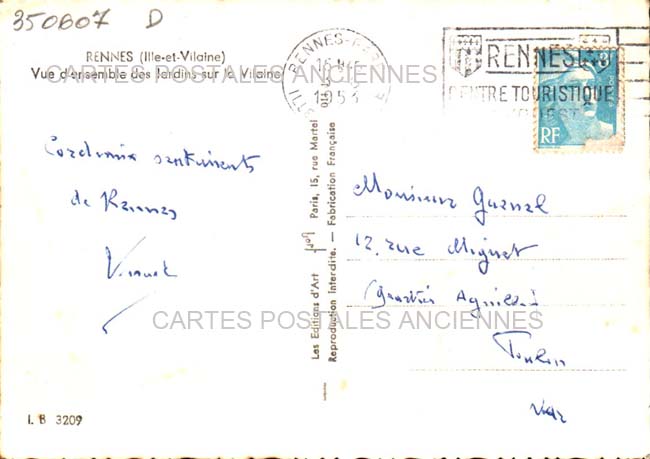 350607 D
RENNES (Ille-et-Vilaine)
Vue d'ensemble des Jardins sur la Vilaine
CARTES POSTALES ANCIENNES
RENNES
15
1953
ILLE
RENNES
CENTRE TOURISTIQUE
RF
Cordiaux sentiments
de Rennes
Les Editions d'Art Yvon Paris, 15, rue Martel
Reproduction Interdite. — Fabrication Française
Monsieur
12, rue Mignet
Quartier
Toulon
Var
CARTES POSTALES ANCIENNES
I. B 3209